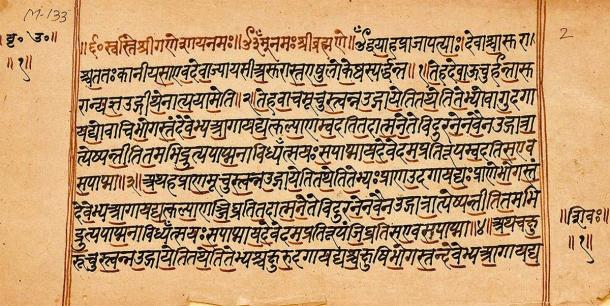 M-133
2
बृ॰उ॰
॥१॥
॥६०स्वस्तिश्रीगणेशायनमः॥ॐनमःश्रीब्रह्मणे॥ॐद्वयाहप्राजापत्याः।देवाश्चासुरा
श्चततःकानीयसाएवदेवाज्यायसाअसुरास्तएषुलोकेष्वस्पर्द्धन्त॥१॥तेहदेवाऊचुर्हन्तासु
रान्यज्ञउद्गीथेनात्ययामेति॥२॥तेहवाचमूचुस्त्वन्नउद्गायेतितथेतितेभ्योवागुदगा
यद्योवाचिभोगस्तंदेवेभ्यआगायद्यत्कल्याणम्वदतितदात्मनेतेविदुरनेनवैनउद्गात्रा
त्येष्यन्तीतितमभिद्रुत्यपाप्मनाविध्यँन्त्सयःसपाप्मायदेवेदमप्रतिरूपम्वदतिसएव
सपाप्मा॥३॥अथहप्राणमूचुस्त्वन्नउद्गायेतितथेतितेभ्यःप्राणउदगायद्यःप्राणेभोगस्तं
देवेभ्यआगायद्यत्कल्याणञ्जिघ्रतितदात्मनेतेविदुरनेनवैनउद्गात्रात्येष्यन्तीतितमभि
द्रुत्यपाप्मनाविध्यँन्त्सयःसपाप्मायदेवेदमप्रतिरूपञ्जिघ्रतिसएवसपाप्मा॥४॥अथचक्षु
रूचुस्त्वन्नउद्गायेतितथेतितेभ्यश्चक्षुरुदगायद्यश्चक्षुषिभोगस्तन्देवेभ्यआगायद्य
॥शिवः॥
॥१॥